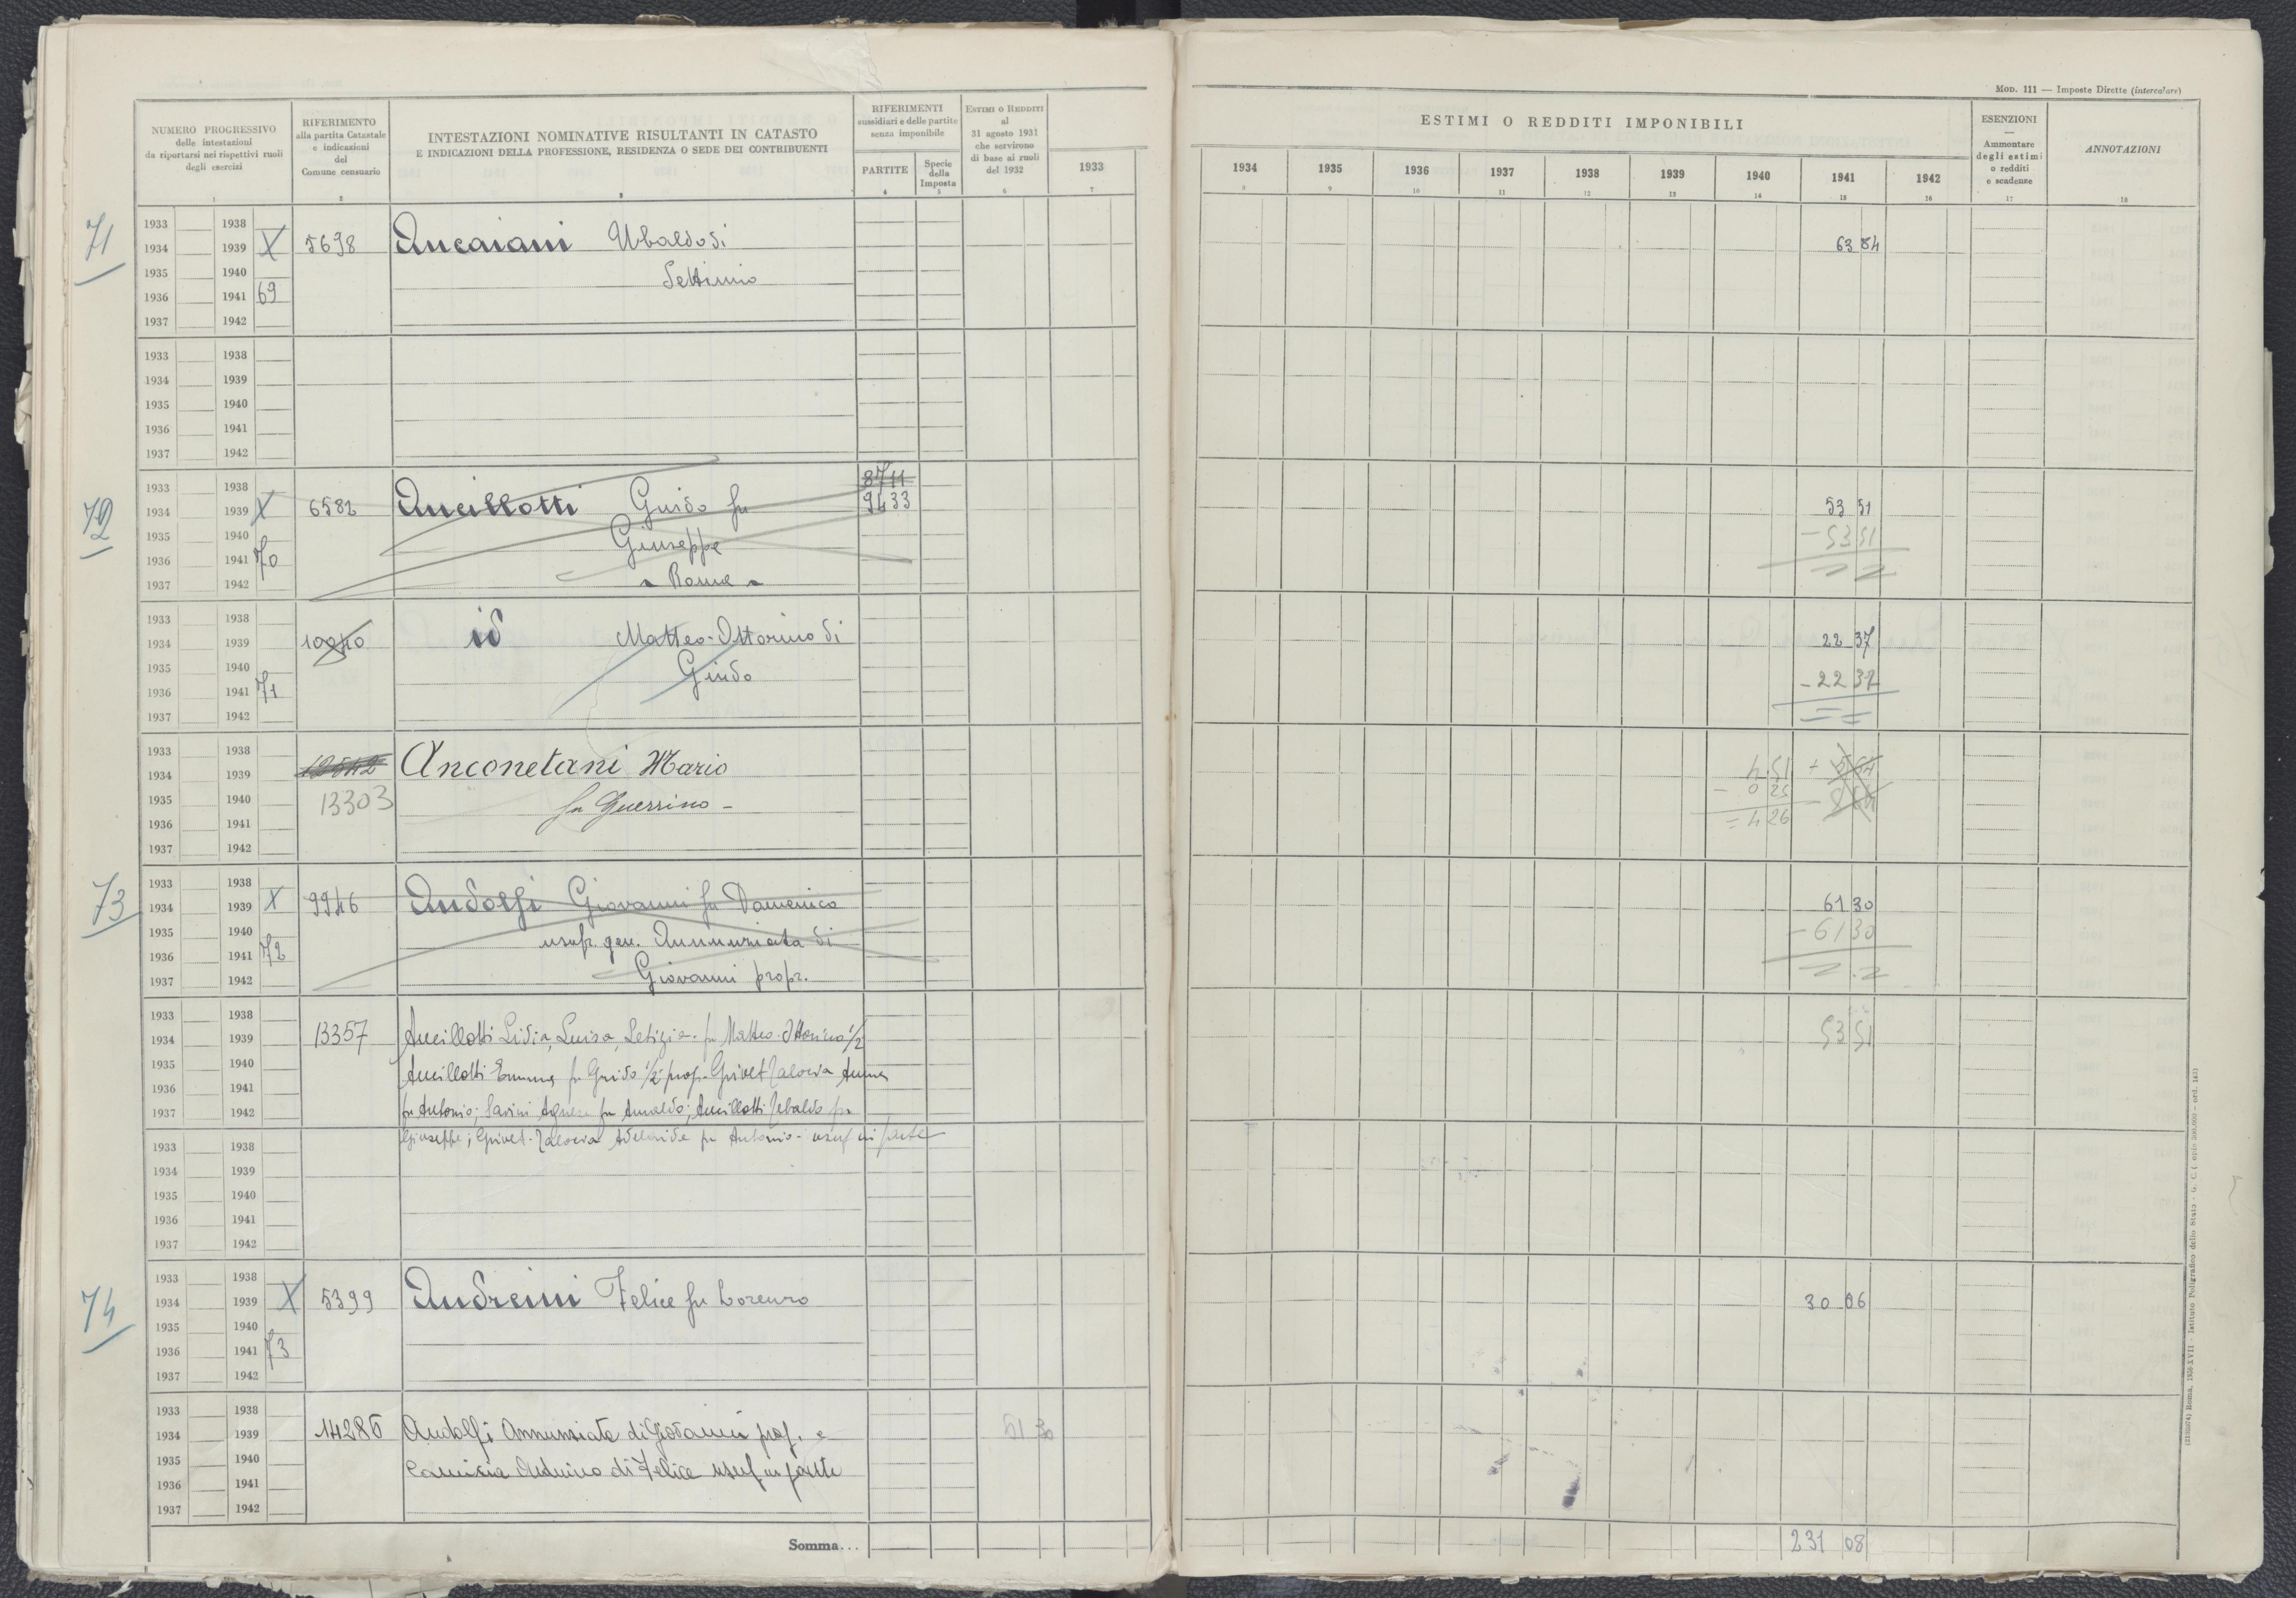 Mod. 111 — Imposte Dirette (intercalare)
NUMERO PROGRESSIVO
delle intestazioni
da riportarsi nei rispettivi ruoli
degli esercizi
1
RIFERIMENTO
alla partita Catastale
e indicazioni
del
Comune censuario
2
INTESTAZIONI NOMINATIVE RISULTANTI IN CATASTO
E INDICAZIONI DELLA PROFESSIONE, RESIDENZA O SEDE DEI CONTRIBUENTI
3
RIFERIMENTI
sussidiari e delle partite
senza imponibile
PARTITE
4
Specie
della
Imposta
5
Estimi o Redditi
al
31 agosto 1931
che servirono
di base ai ruoli
del 1932
6
1933
7
ESTIMI O REDDITI IMPONIBILI
1934 1935 1936 1937 1938 1939 1940 1941 1942
8 9 10 11 12 13 14 15 16
ESENZIONI
—
Ammontare
degli estimi
o redditi
e scadenze
17
ANNOTAZIONI
18
71
1933 1938
1934 1939 X 5698 Ancaiani Ubaldo di 63 84
1935 1940 Settimio
1936 1941 69
1937 1942
1933 1938
1934 1939
1935 1940
1936 1941
1937 1942
72
1933 1938 8711
1934 1939 X 6582 Ancillotti Guido fu 9433 53 51
1935 1940 Giuseppe - 53 51
1936 1941 70
1937 1942 - Roma -
1933 1938
1934 1939 10040 id Matteo-Ottorino di 22 37
1935 1940 Guido
1936 1941 71 - 22 37
1937 1942
1933 1938
1934 1939 12542 Anconetani Mario 4 51
1935 1940 13303 fu Guerrino - - 0 25
1936 1941 = 4 26
1937 1942
73
1933 1938
1934 1939 X 9946 Andolfi Giovanni fu Domenico 61 30
1935 1940 usufr. gen. Annunziata di - 61 30
1936 1941 72
1937 1942 Giovanni propr.
1933 1938
1934 1939 13357 Ancillotti Lidia, Luisa, Letizia fu Matteo-Ottorino 1/2 53 51
1935 1940
1936 1941 Ancillotti Emma fu Guido 1/2 prop- Grivet Anna
1937 1942 fu Antonio; Savini Agnese fu Arnaldo; Ancillotti fu
1933 1938 Giuseppe; Grivet- Adelaide fu Antonio- usuf in parte
1934 1939
1935 1940
1936 1941
1937 1942
74
1933 1938
1934 1939 X 5399 Andreini Felice fu Lorenzo 30 06
1935 1940
1936 1941 73
1937 1942
1933 1938
1934 1939 14286 Andolfi Annunziata di Giovanni prop. e 61 30
1935 1940
1936 1941 Arduino di Felice usuf in parte
1937 1942
Somma... 231 08
(2103074) Roma, 1938-XVII - Istituto Poligrafico dello Stato - G. C.